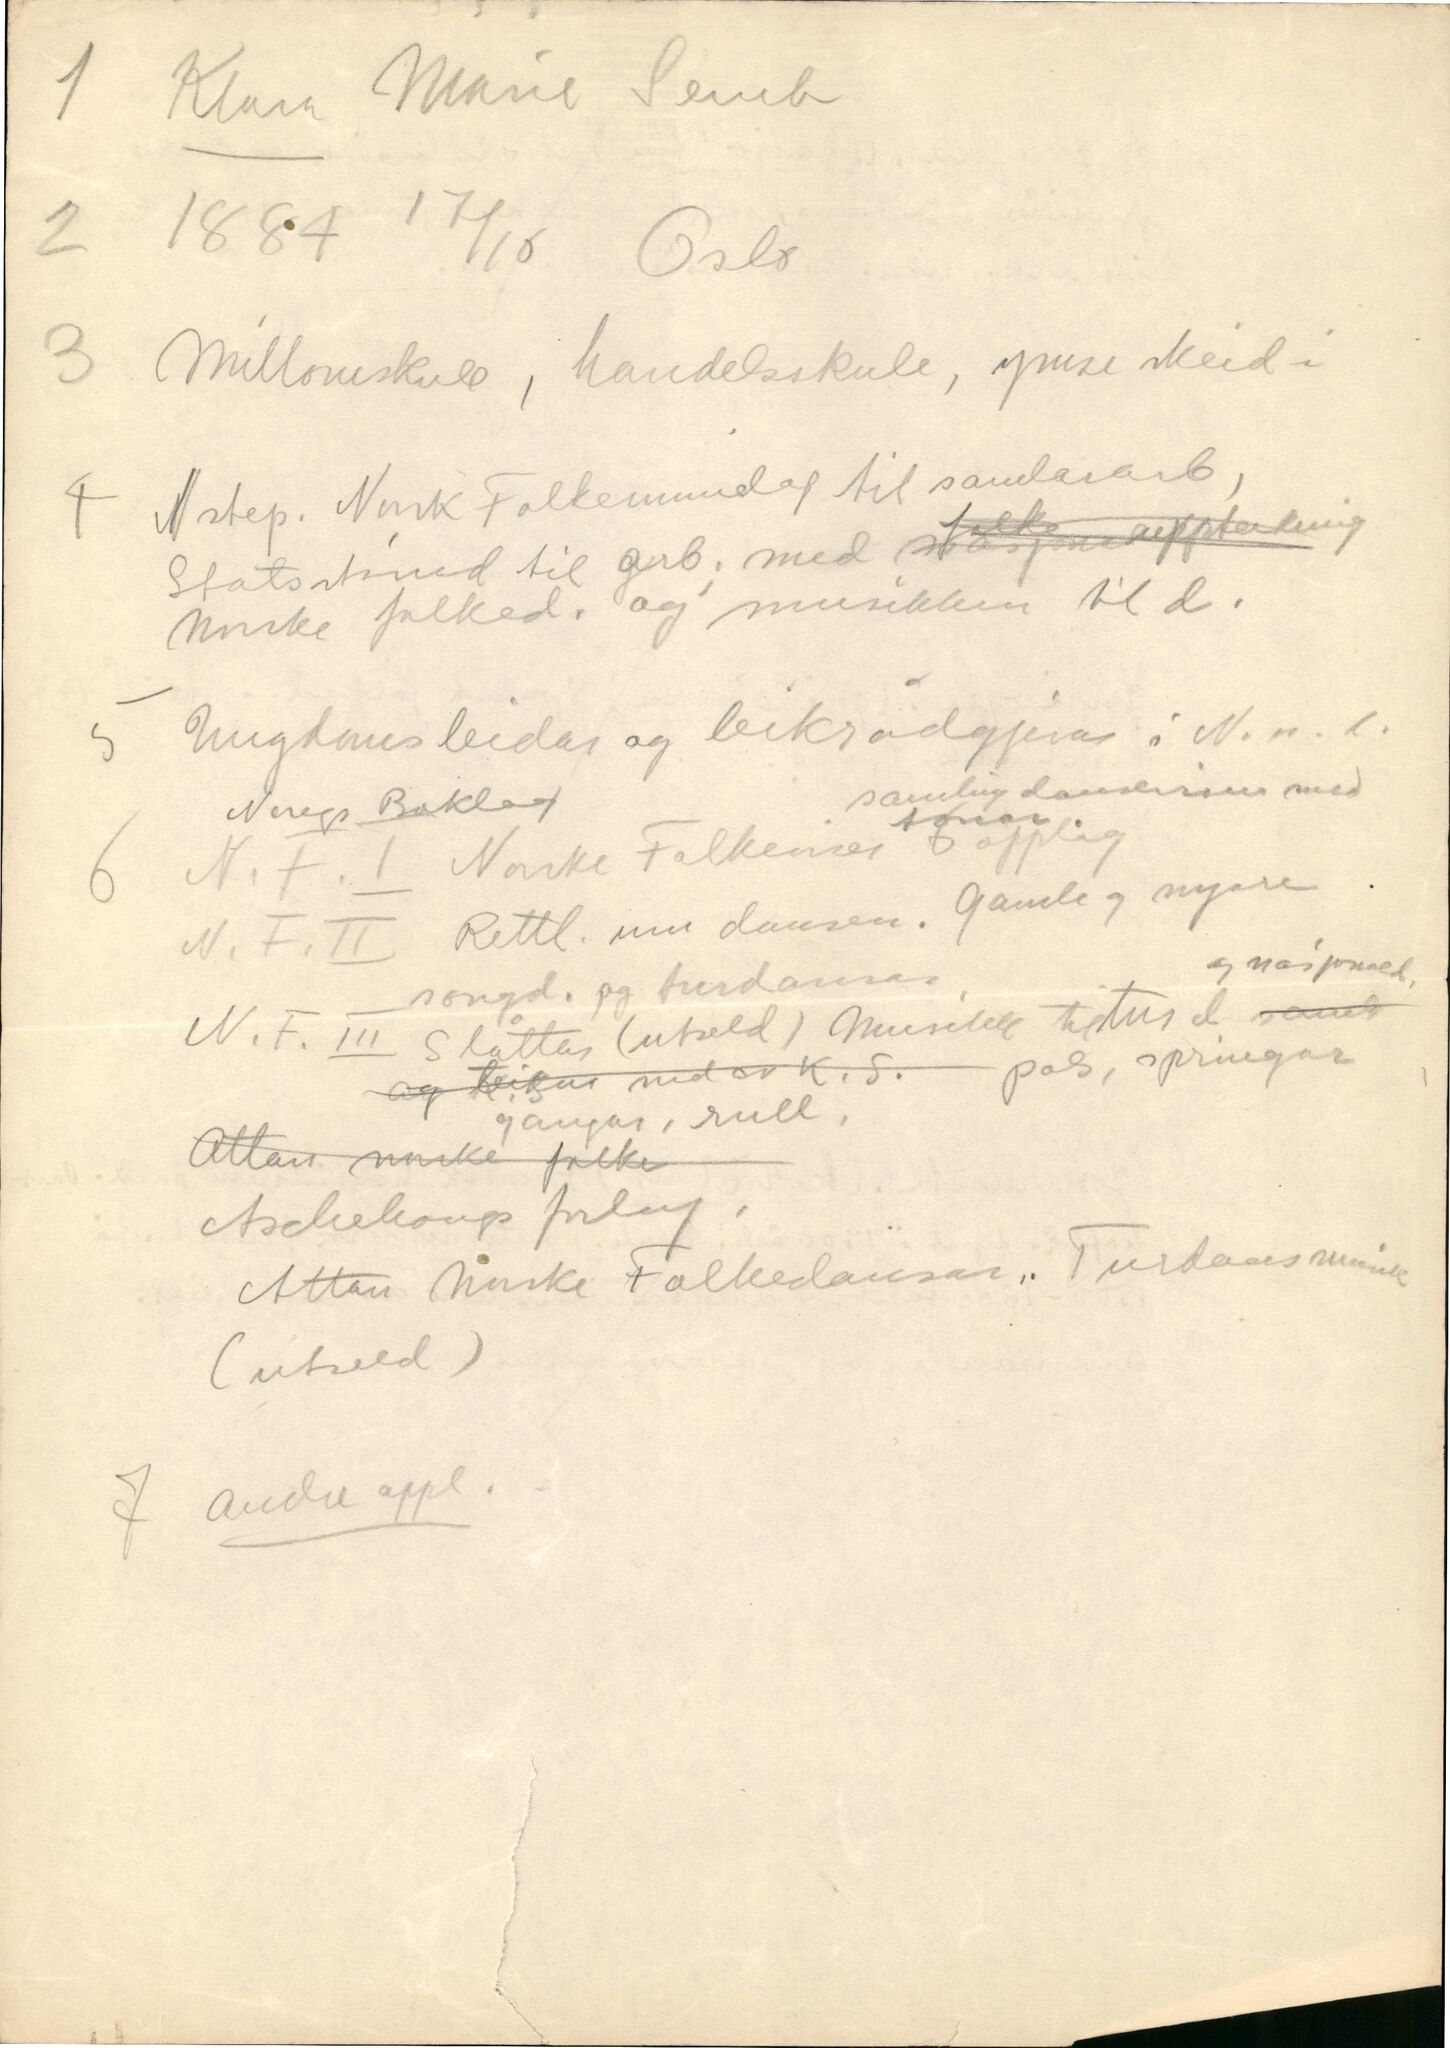 1 Klara Marie Semb
2 1884 17/10 Oslo
3 Millomskule, handelsskule, ymse skeid i
4 Nstip. Norsk Folkeminnelag til samlararb,
Statsstønad til arb. med folke
norske folked. og musikken til d.
5 Ungdomsleidar og leikrådgjevar i N. u. l.
Noregs Boklag samling dansevisur med
tonar.
6 N. F. I Norske Folkeviser 6 opplag
N. F. II Rettl. um dansen. Gamle og nyare
songd. og turdansar.
og nasjonald.
N. F. III Slåttar (utseld) Musikk til turd samt
og leikar ved K. S. pols, springar
gangar, rull.
Attan norske folke
Aschehougs forlag.
Attan Norske Folkedansar. Turdansmusikk
(utseld)
7 Andre oppl.